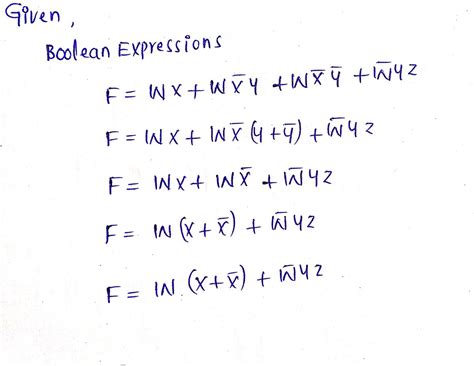 Given,
Boolean Expressions
F = WX + WX̅Y + WX̅Y̅ + W̅YZ
F = WX + WX̅ (Y + Y̅) + W̅YZ
F = WX + WX̅ + W̅YZ
F = W (X + X̅) + W̅YZ
F = W (X + X̅) + W̅YZ